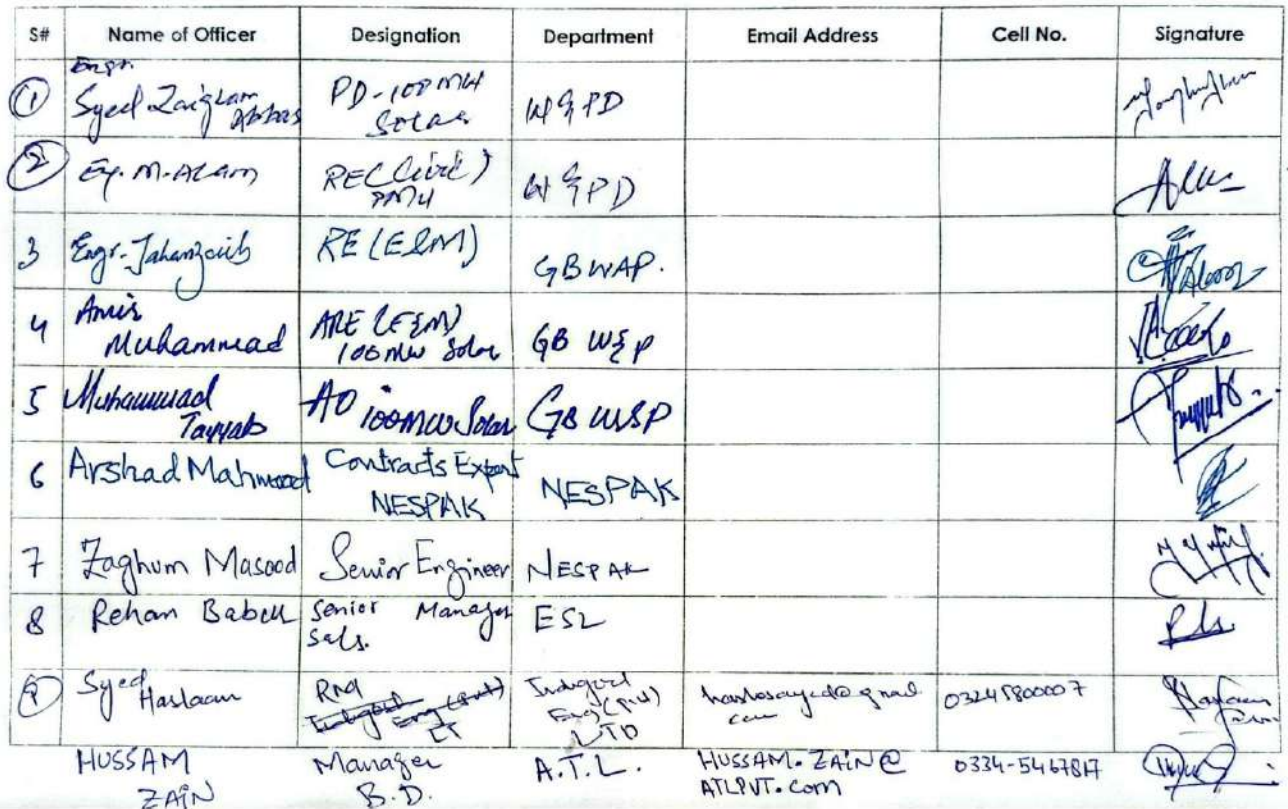 S# Name of Officer Designation Department Email Address Cell No. Signature
1 Engr. Syed Zaigham Abbas PD-100 MW Solar W&PD
2 M. Alam RE (Civil) PMU W&PD
3 Engr. Jahanzaib RE (E&M) GBW&P.
4 Amir Muhammad ARE (E&M) 100 MW Solar GB W&P
5 Muhammad Tayyab AO 100MW Solar GB W&P
6 Arshad Mahmood Contracts Expert NESPAK NESPAK
7 Zaghum Masood Senior Engineer NESPAK
8 Rehan Senior Manager Sals. ESL
9 Syed Haslaam (Pvt) LTD 03245800007
HUSSAM ZAIN Manager B.D. A.T.L. HUSSAM.ZAIN@ATLPVT.com 0334-5467817